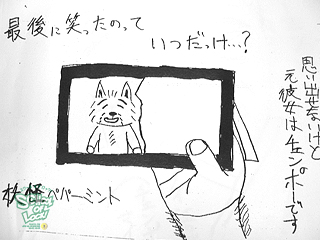 最後に笑ったのって
いつだっけ…?
思い出せないけど
元彼女はチェンポーです
妖怪ペパーミント